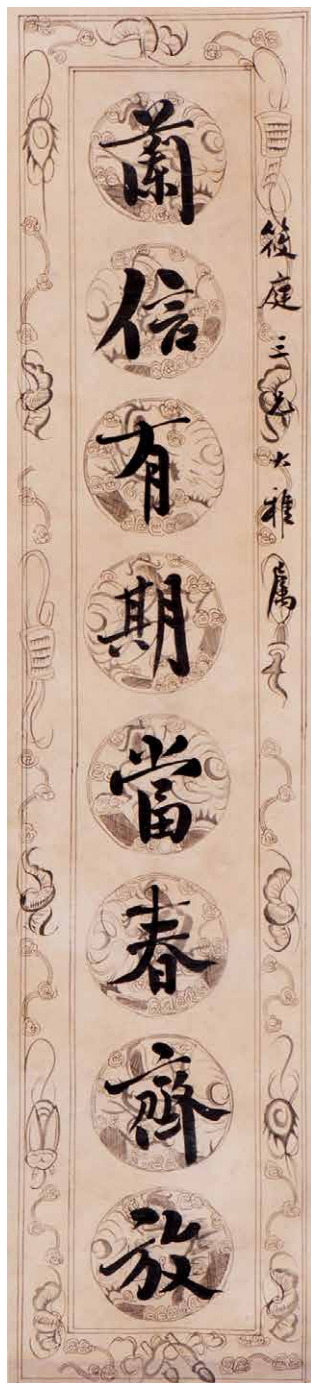 筱庭三兄大雅屬
蘭信有期當春齊放